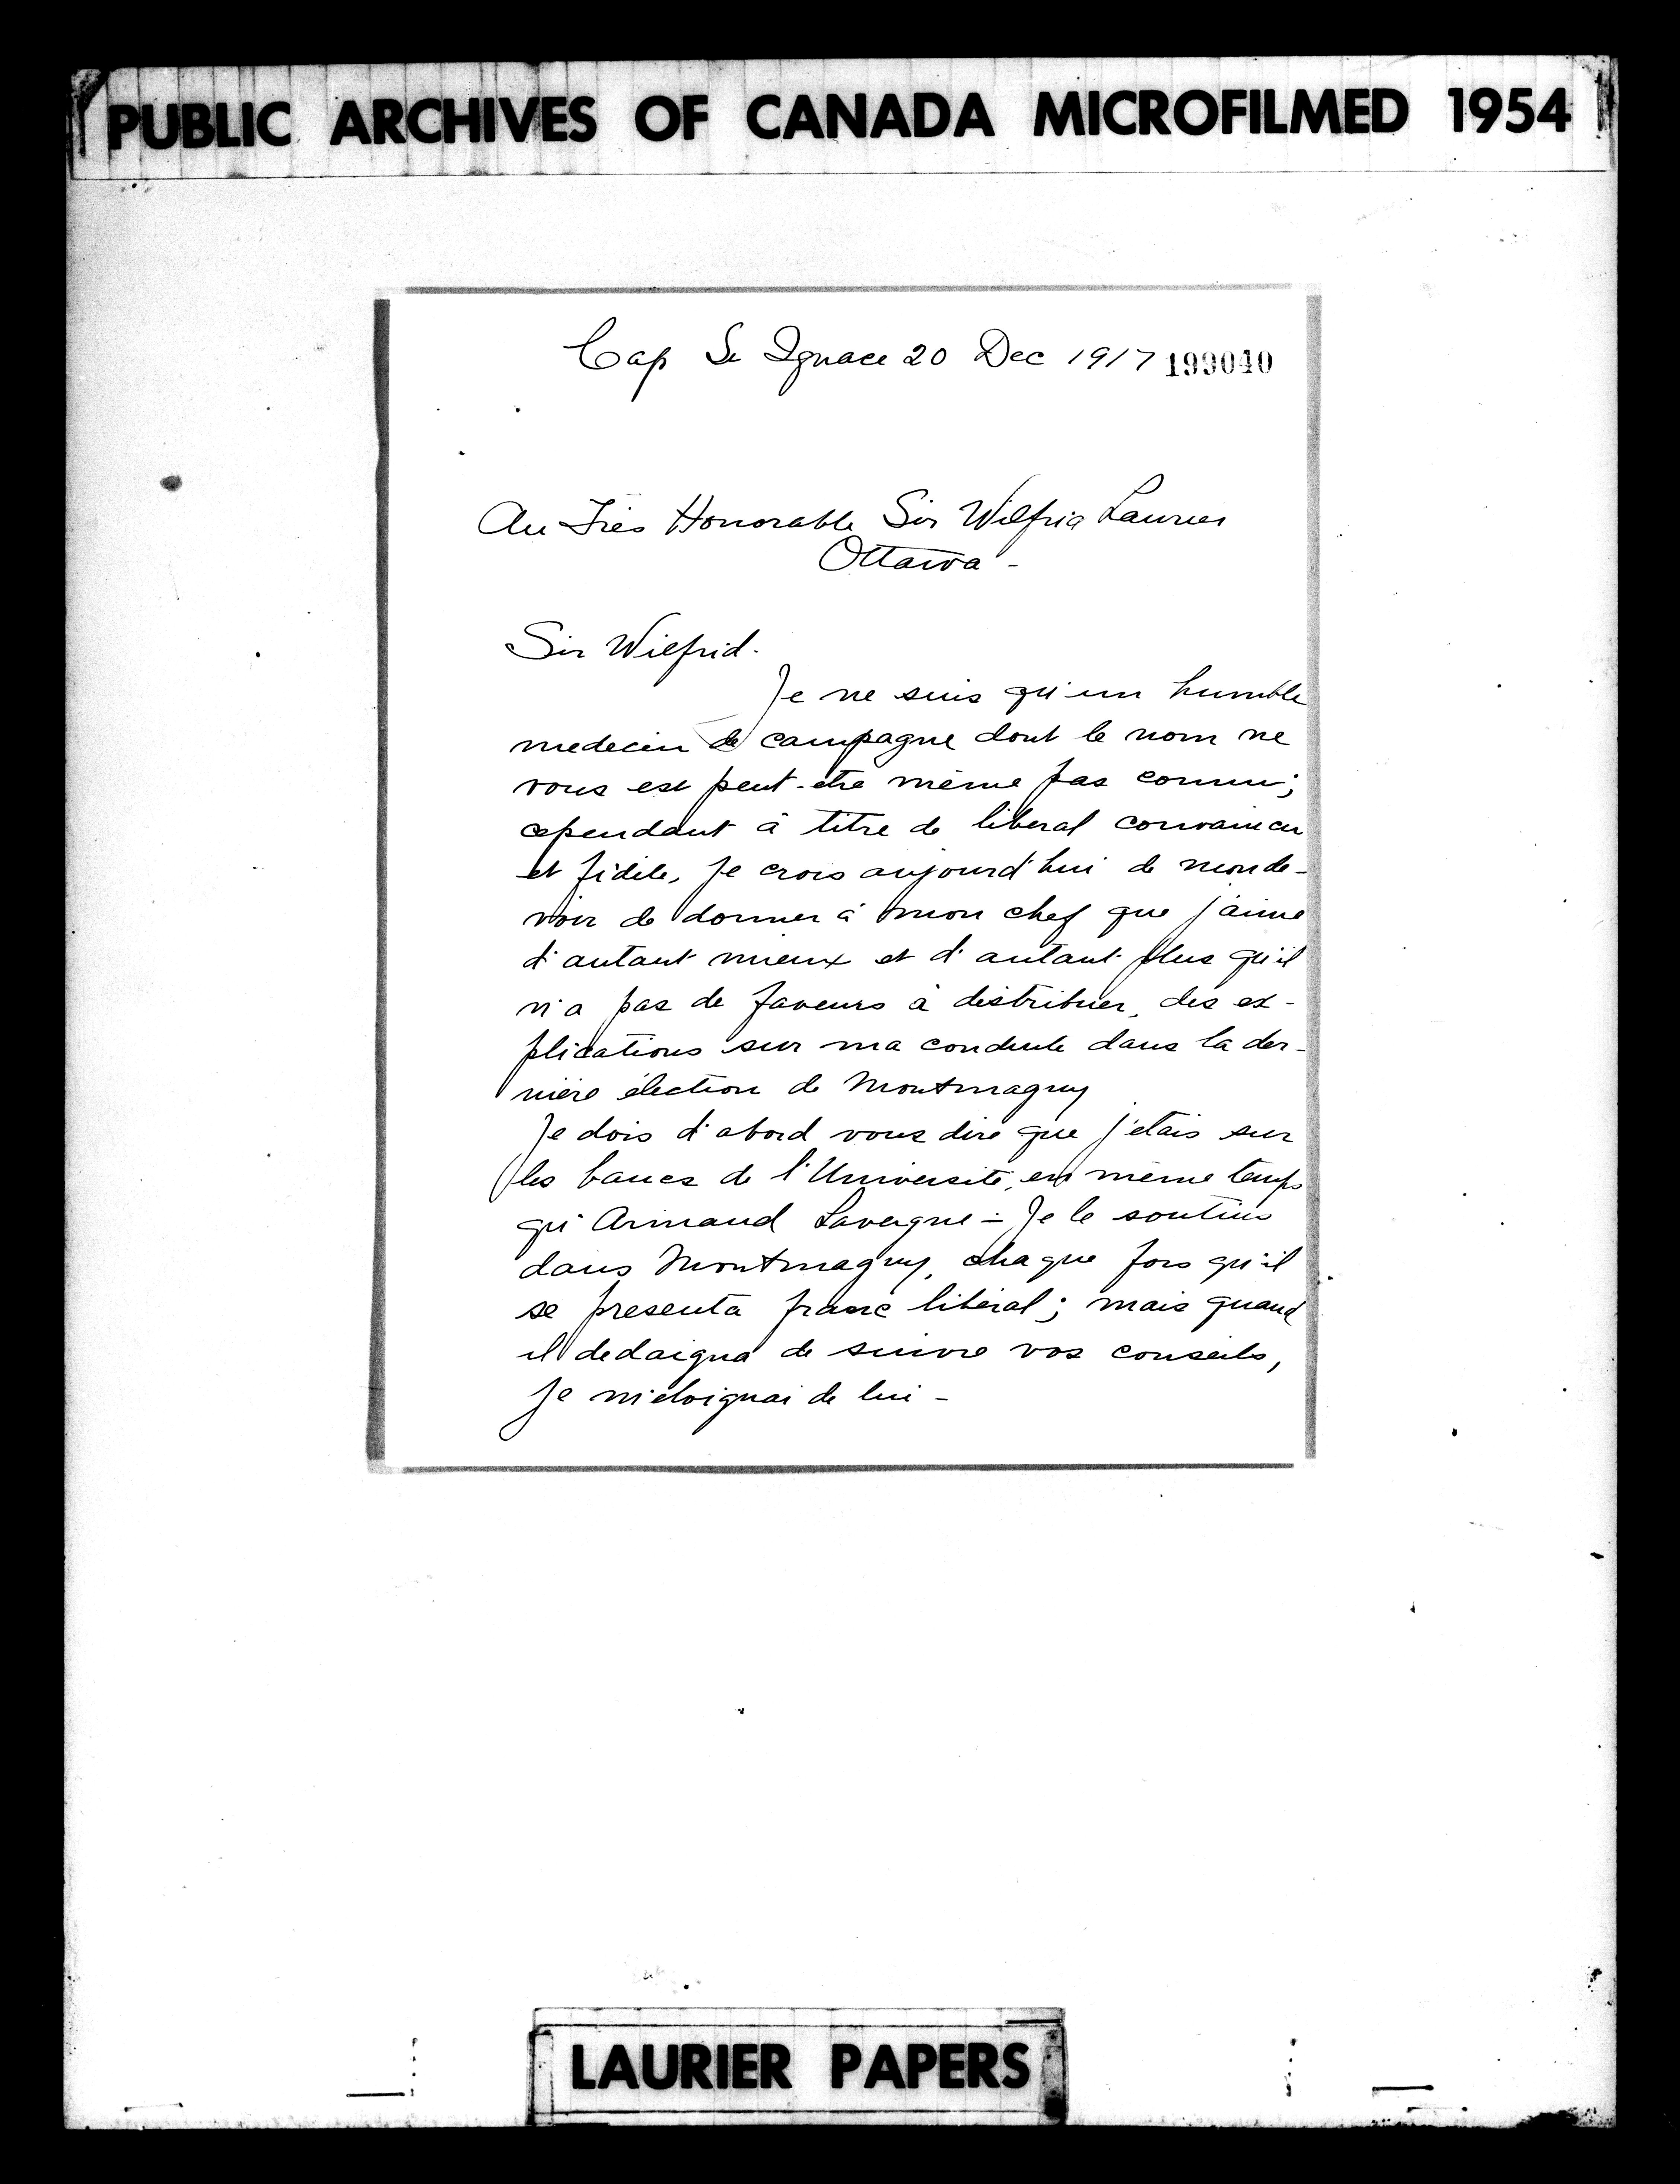 PUBLIC ARCHIVES OF CANADA MICROFILMED 1954
Cap St Ignace 20 Dec 1917 199040
Au Très Honorable Sir Wilfrid Laurier
Ottawa -
Sir Wilfrid.
Je ne suis qu'un humble
medecin de campagne dont le nom ne
vous est peut-etre même pas connu;
cependant à titre de liberal convaincu
et fidèle, je crois aujourd'hui de mon de-
voir de donner à mon chef que j'aime
d'autant mieux et d'autant plus qu'il
n'a pas de faveurs à distribuer, des ex-
plications sur ma conduite dans la der-
nière élection de Montmagny
Je dois d'abord vous dire que j'etais sur
les bancs de l'Université, en même temps
qu'Armand Lavergne - Je le soutins
dans Montmagny, chaque fois qu'il
se presenta franc libéral; mais quand
il dedaigna de suivre vos conseils,
je m'eloignai de lui -
LAURIER PAPERS